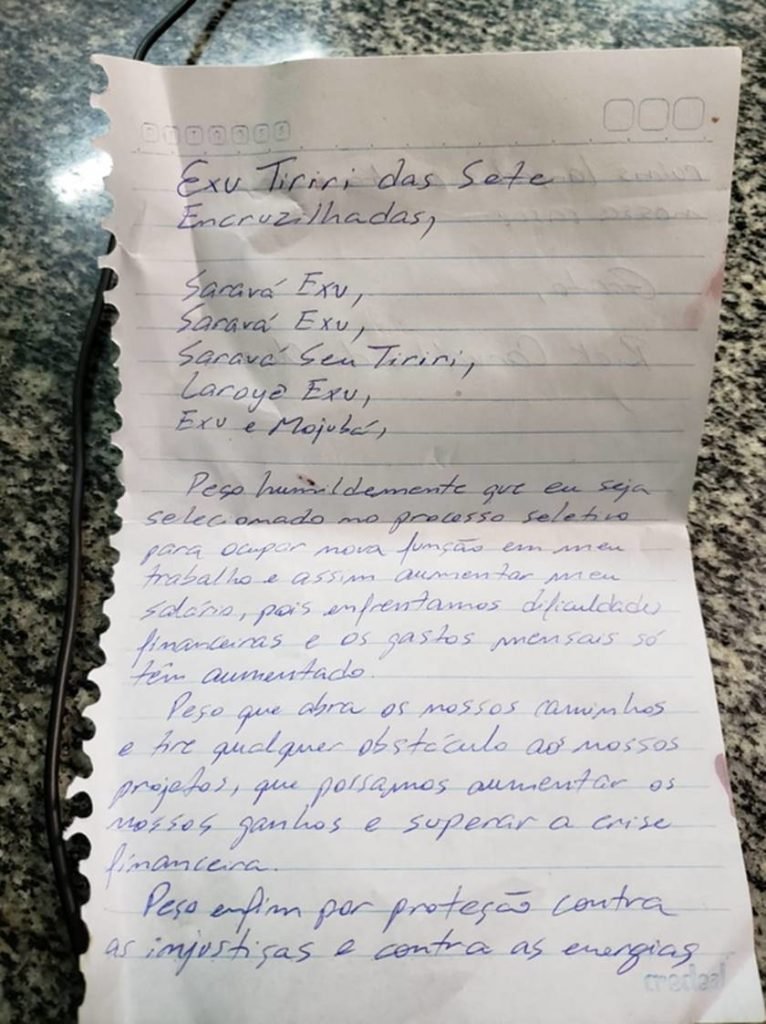 Exu Tiriri das Sete
Encruzilhadas,
Saravá Exu,
Saravá Exu,
Saravá Seu Tiriri,
Laroyê Exu,
Exu e Mojubá,
Peço humildemente que eu seja
selecionado no processo seletivo
para ocupar nova função em meu
trabalho e assim aumentar meu
salário, pois enfrentamos dificuldades
financeiras e os gastos mensais só
têm aumentado.
Peço que abra os nossos caminhos
e tire qualquer obstáculo aos nossos
projetos, que possamos aumentar os
nossos ganhos e superar a crise
financeira.
Peço enfim por proteção contra
as injustiças e contra as energias